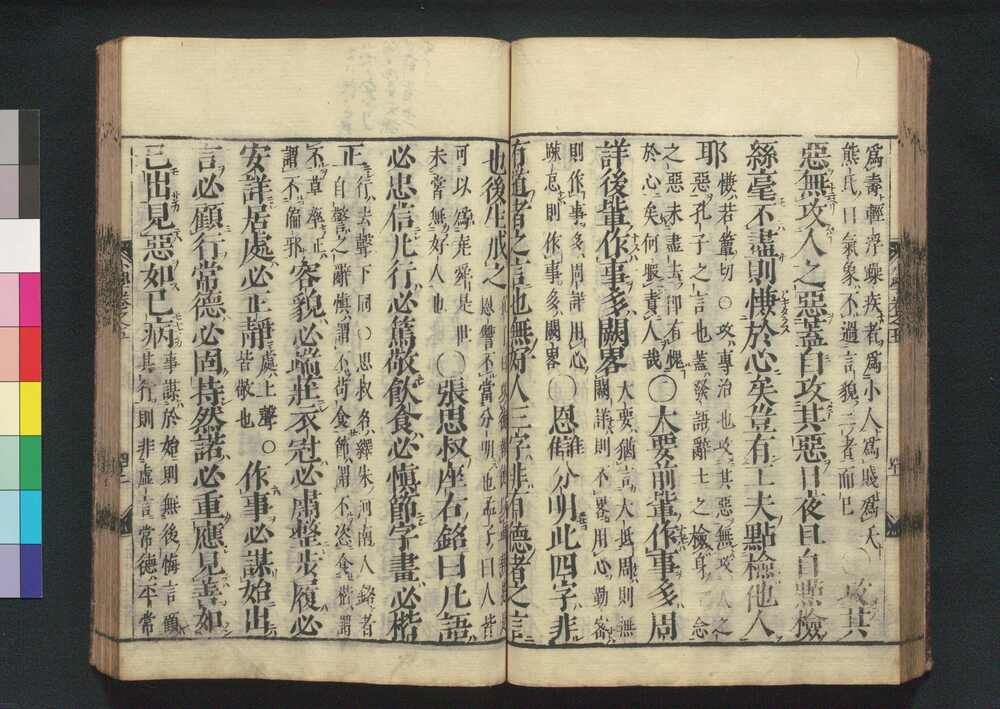 爲壽輕浮躁疾者爲小人爲賤爲夭
熊氏曰氣象不過言貌二者而已
○攻其
惡無攻人之惡蓋自攻其惡日夜且自點檢
絲毫不盡則慊於心矣豈有工夫點檢他人
耶
慊若簟切○攻專治也攻其惡無攻人之
惡孔子之言也蓋發語辭士之檢身念
之惡未盡去卽有愧
於心矣何暇責人哉
○大要前輩作事多周
詳後輩作事多闕畧
大要猶言大抵周則無
闕詳則不畧用心勤密
則作事多周詳用心
踈怠則作事多闕畧
○恩讎分明此四字非
有道者之言也無好人三字非有德者之言
也後生戒之
恩讎不當分明也孟子曰人皆
可以爲堯舜是世
未嘗無好人也
○張思叔座右銘曰凡語
必忠信凡行必篤敬飮食必愼節字畫必楷
正
行去聲下同○思叔名繹朱河南人銘者
自警之辭愼謂不苟食節謂不恣食楷謂
不草率正
謂不偏邪
容貌必端莊衣冠必肅整步履必
安詳居處必正靜
處上聲○
皆敬也
作事必謀始出
言必顧行常德必固持然諾必重應見善如
己出見惡如己病
事謀於始則無後悔言顧
其行則非虛言常德平常